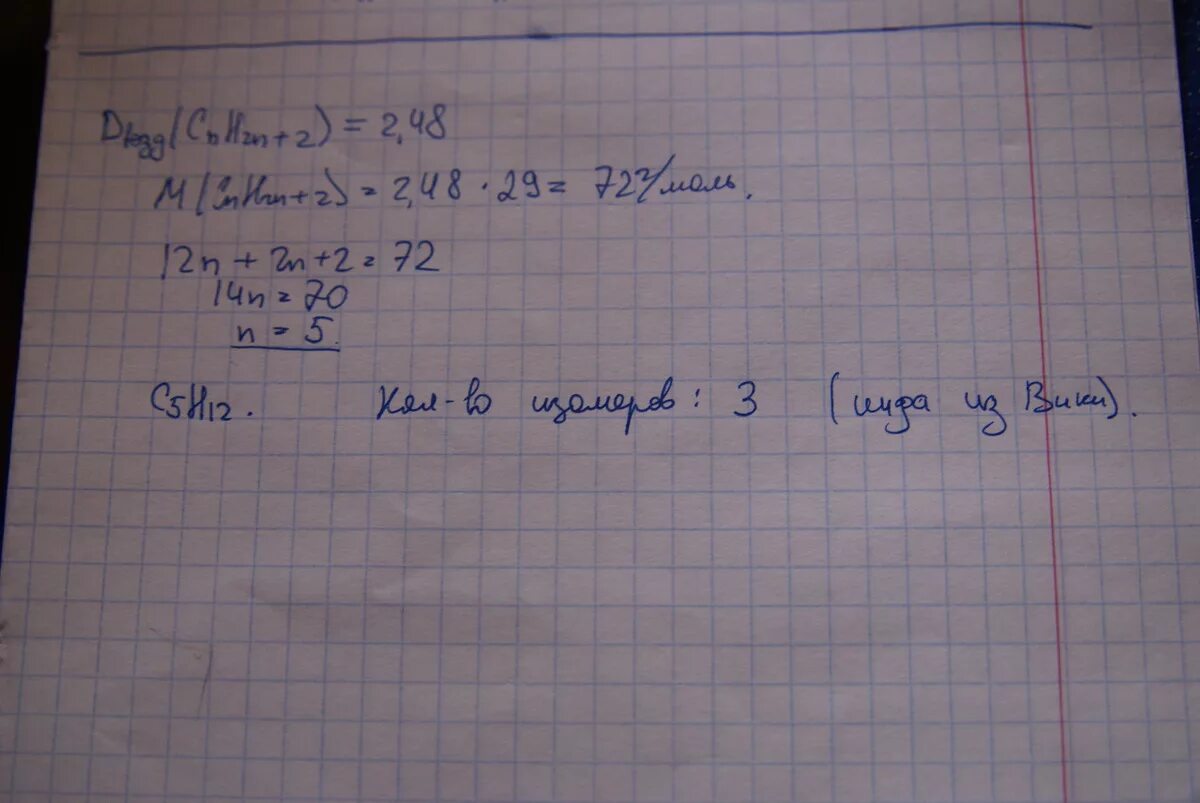 Dвозд(CnH2n+2) = 2,48
M(CnH2n+2) = 2,48 · 29 = 72 г/моль.
12n + 2n + 2 = 72
14n = 70
n = 5.
C5H12. Кол-во изомеров: 3 (инфа из Вики).